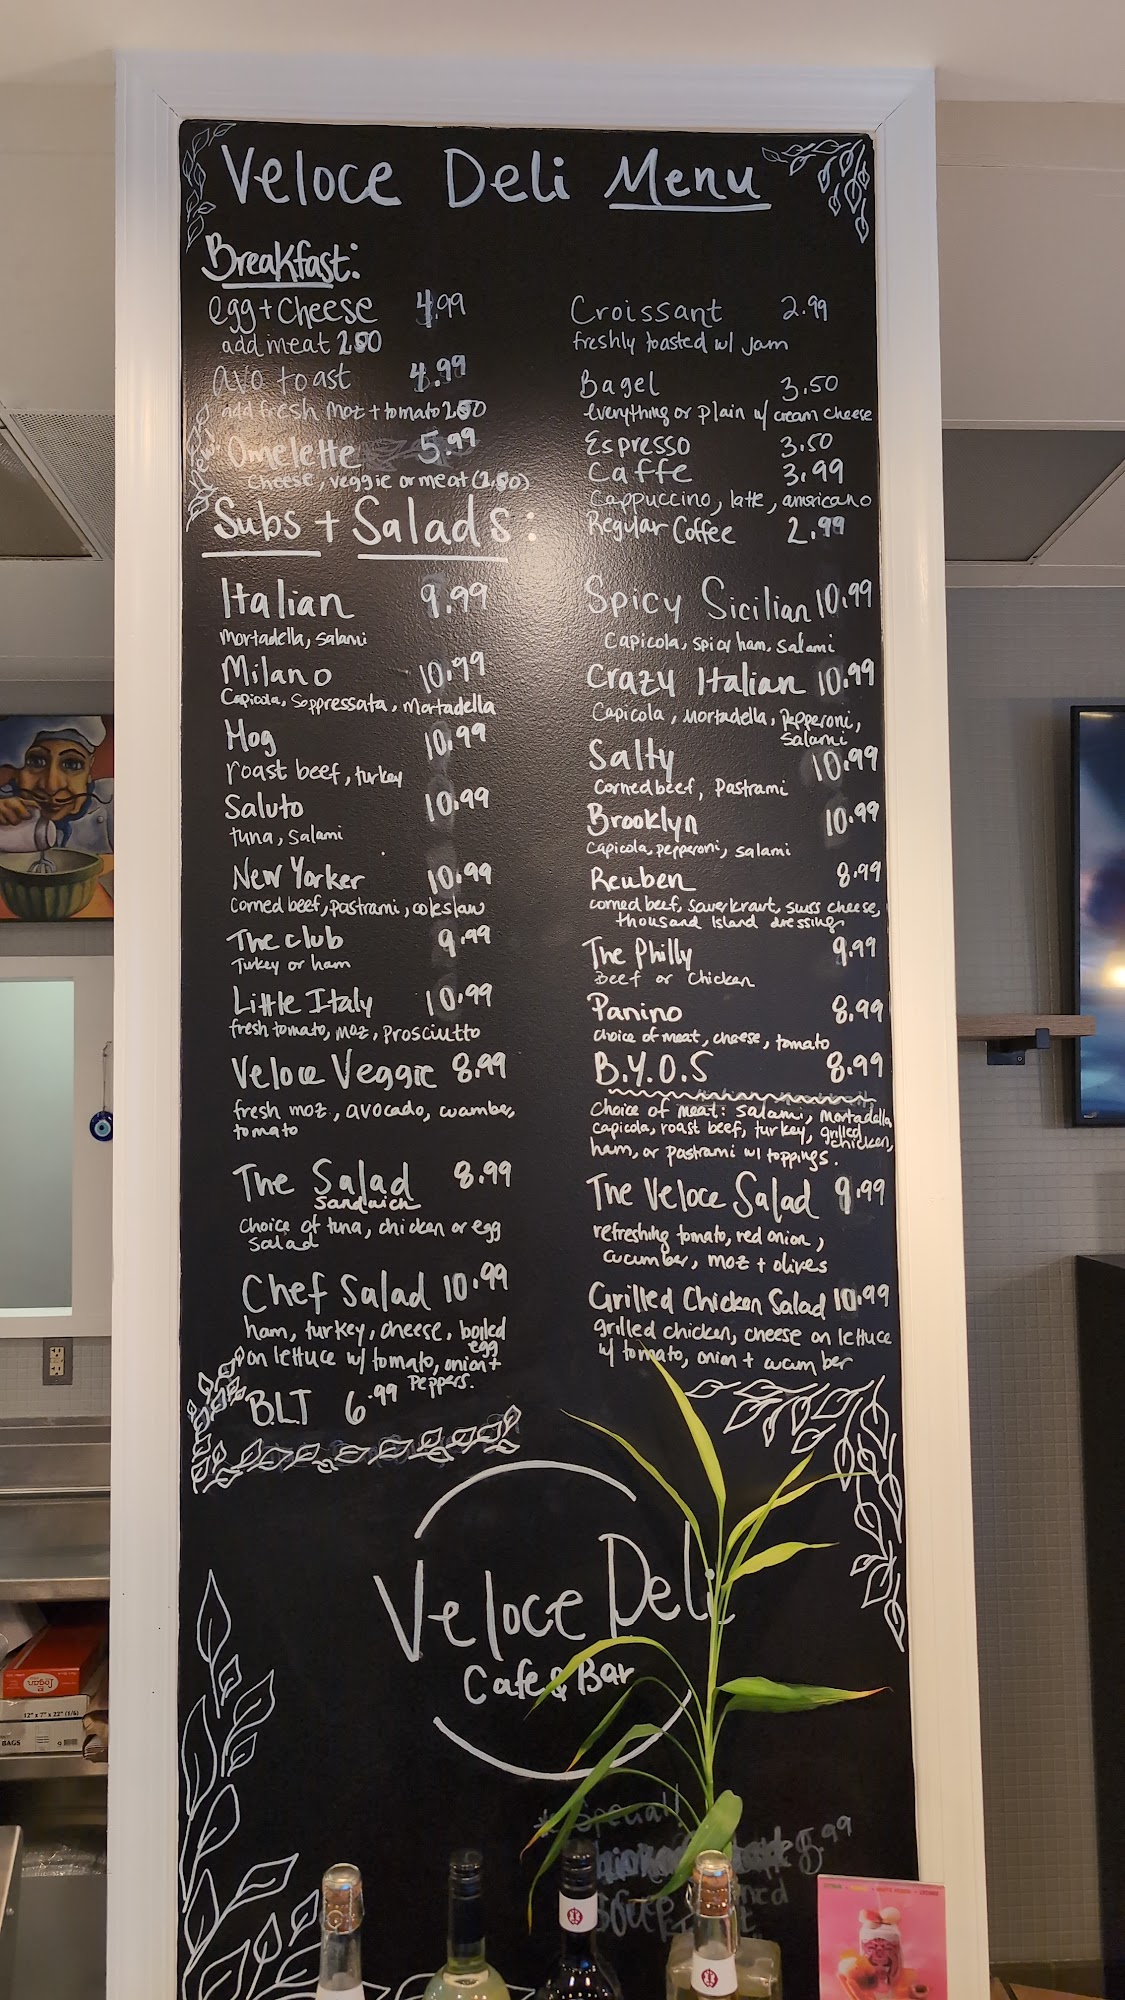 Veloce Deli Menu
Breakfast:
egg + cheese 4.99
add meat 2.50
avo toast 4.99
add fresh moz + tomato 2.50
Omelette 5.99
cheese, veggie or meat (2.50)
Croissant 2.99
freshly toasted w/ jam
Bagel 3.50
everything or plain w/ cream cheese
Espresso 3.50
Caffe 3.99
Cappuccino, latte, americano
Regular Coffee 2.99
Subs + Salads:
Italian 9.99
Mortadella, salami
Milano 10.99
Capicola, Soppressata, Mortadella
Hog 10.99
roast beef, turkey
Saluto 10.99
tuna, salami
New Yorker 10.99
corned beef, pastrami, coleslaw
The club 9.99
Turkey or ham
Little Italy 10.99
fresh tomato, moz, prosciutto
Veloce Veggie 8.99
fresh moz, avocado, cucumber,
tomato
The Salad 8.99
Sandwich
choice of tuna, chicken or egg
salad
Chef Salad 10.99
ham, turkey, cheese, boiled
egg
on lettuce w/ tomato, onion +
peppers.
BLT 6.99
Spicy Sicilian 10.99
Capicola, spicy ham, salami
Crazy Italian 10.99
Capicola, Mortadella, Pepperoni,
Salami
Salty 10.99
Corned beef, Pastrami
Brooklyn 10.99
Capicola, pepperoni, salami
Reuben 8.99
corned beef, sauerkraut, swiss cheese,
thousand Island dressing
The Philly 9.99
Beef or Chicken
Panino 8.99
choice of meat, cheese, tomato
B.Y.O.S 8.99
Choice of meat: salami, mortadella,
capicola, roast beef, turkey, grilled chicken,
ham, or pastrami w/ toppings.
The Veloce Salad 9.99
refreshing tomato, red onion,
cucumber, moz + olives
Grilled Chicken Salad 10.99
grilled chicken, cheese on lettuce
w/ tomato, onion + cucumber
Veloce Deli
Cafe & Bar
Special!
5.99
12" x 7" x 22"
BAGS